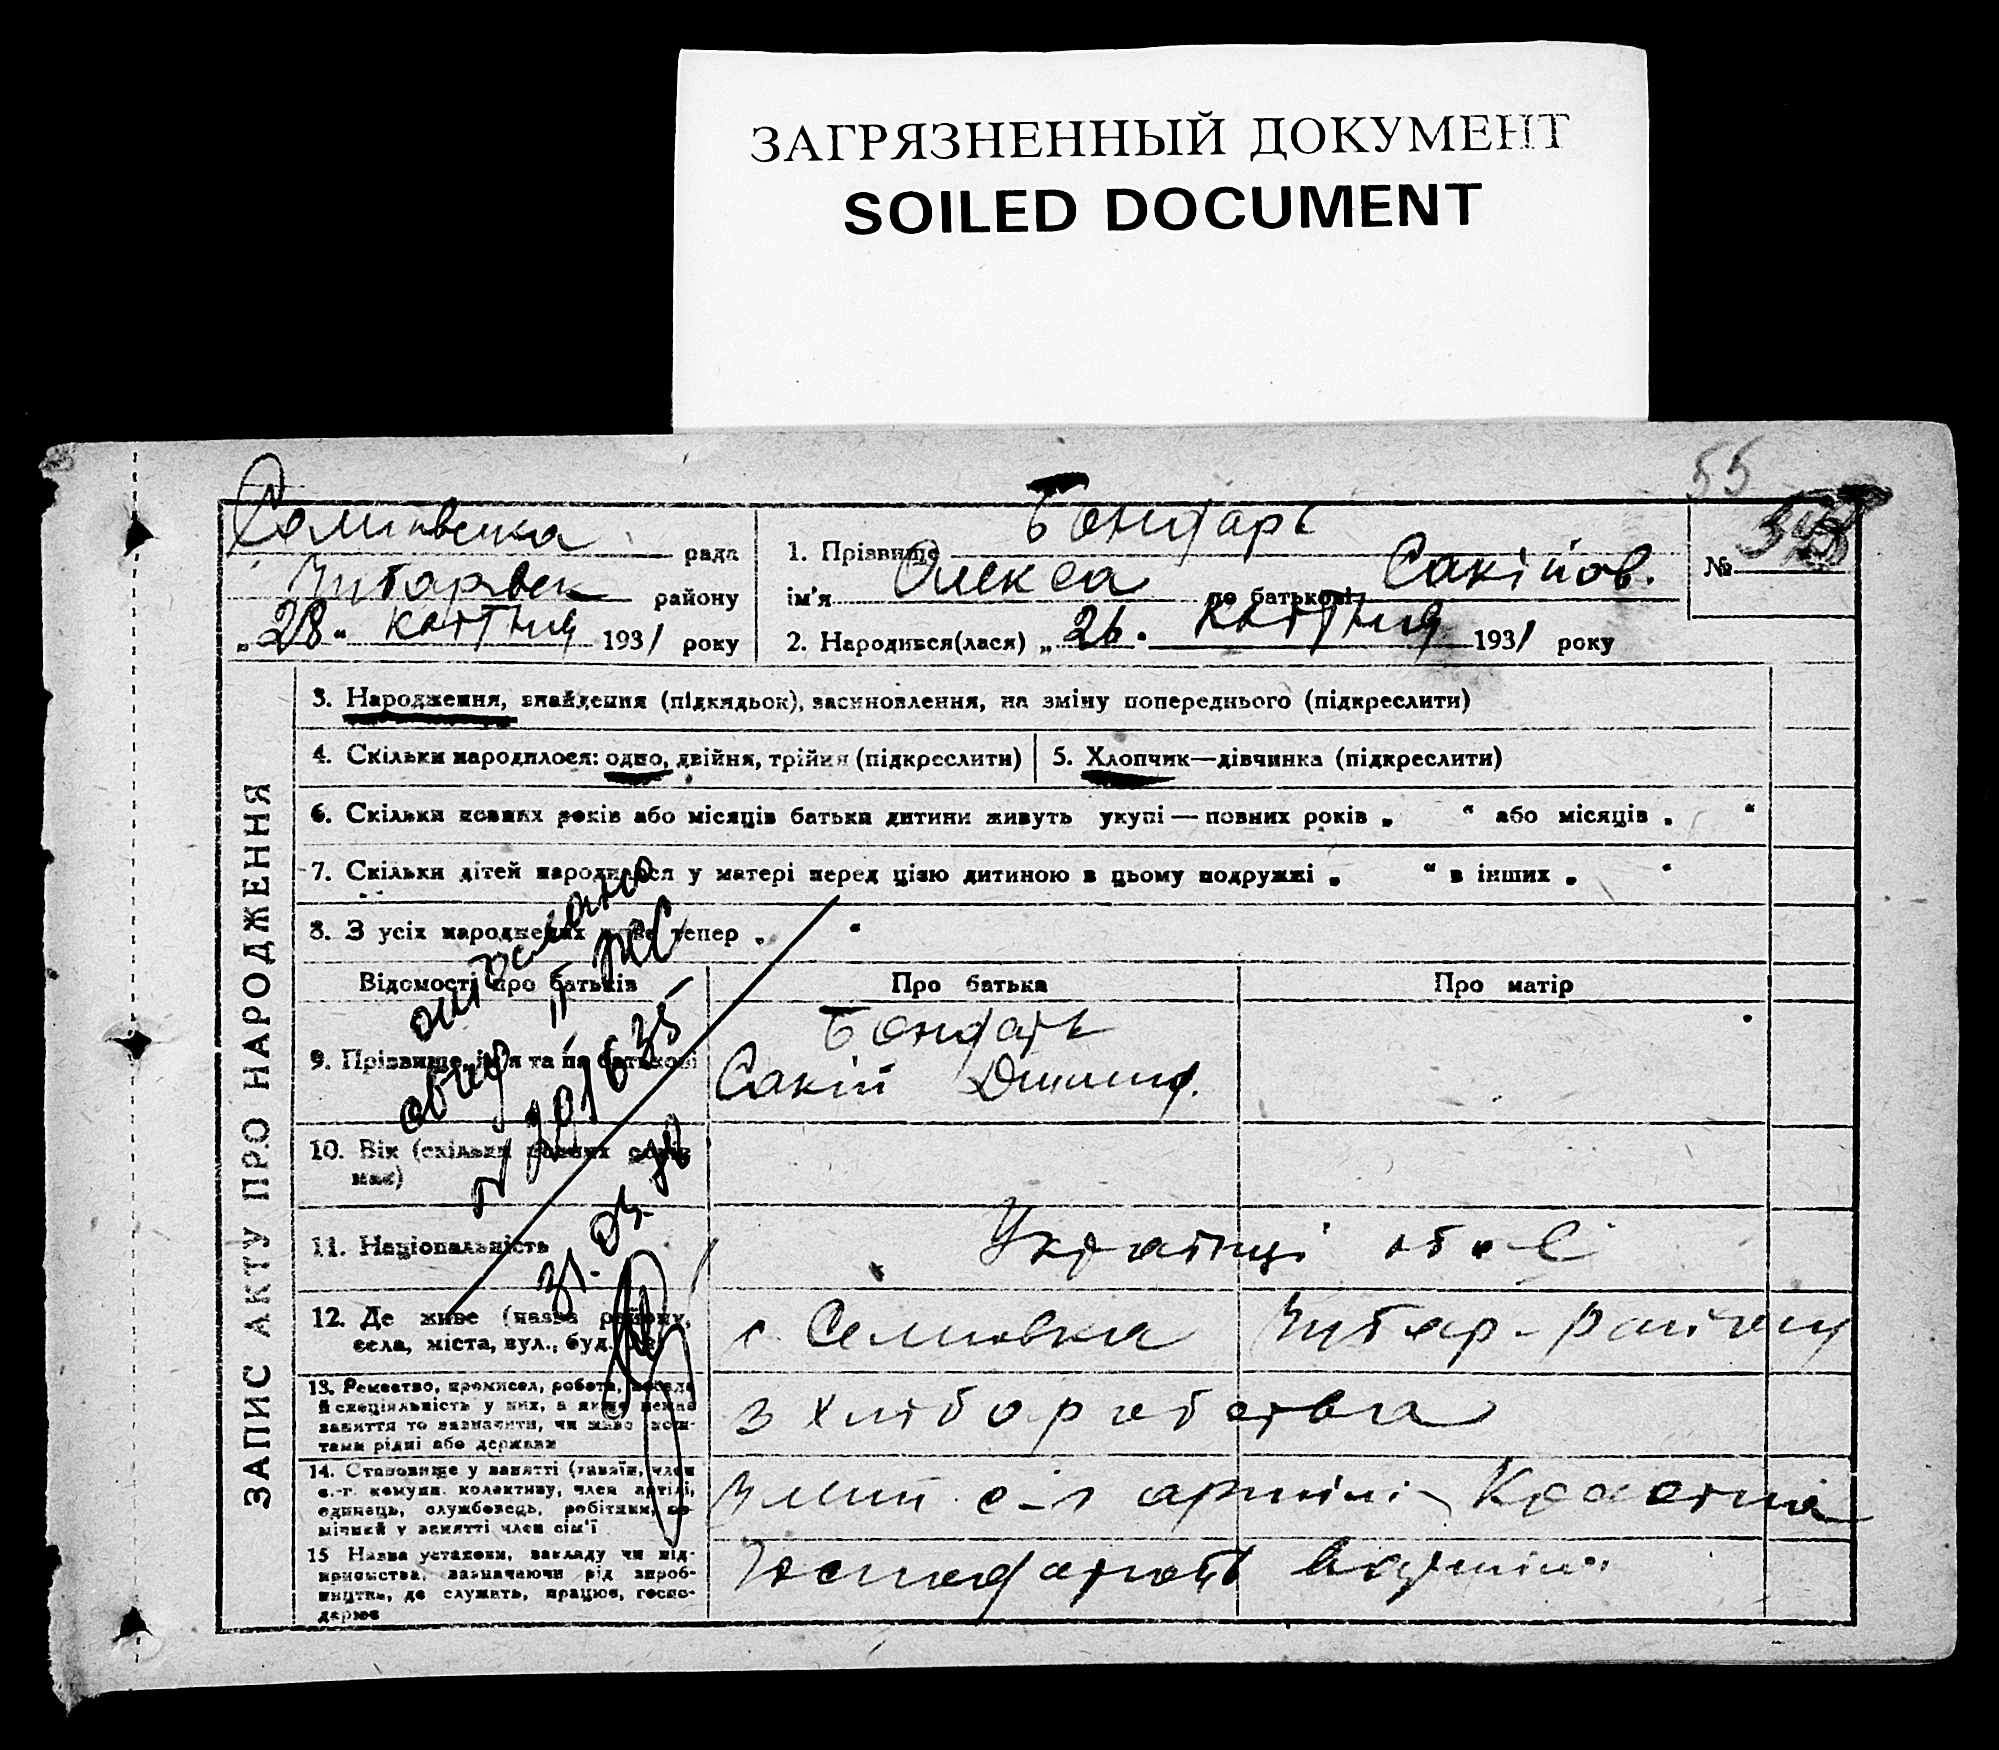 ЗАГРЯЗНЕННЫЙ ДОКУМЕНТ
SOILED DOCUMENT
55
рада
району
„28“ квітня 1931 року
1. Прізвище Бондарь
ім'я Олекса по батькові Сакійов.
2. Народився(лася) „26“ квітня 1931 року
№
ЗАПИС АКТУ ПРО НАРОДЖЕННЯ
3. Народження, знайдення (підкидьок), засиновлення, на зміну попереднього (підкреслити)
4. Скільки народилося: одно, двійня, трійня (підкреслити)
5. Хлопчик—дівчинка (підкреслити)
6. Скільки повних років або місяців батьки дитини живуть укупі — повних років „ “ або місяців „ “
7. Скільки дітей народилося у матері перед цією дитиною в цьому подружжі „ “ в інших „ “
8. З усіх народжених живе тепер „ “
Відомості про батьків
Про батька
Про матір
9. Прізвище, ім'я та по батькові
Бондарь
Сакій
10. Вік (скільки повних років має)
11. Національність
Українці обоє
12. Де живе (назва району, села, міста, вул., буд.
с Селиовка Чутар-району
13. Ремество, промисел, робота, посада
й спеціяльність у них, а якщо немає
заняття то зазначити, чи живе кош-
тами рідні або держави
з хліборобства
14. Становище у занятті (хазяїн, член
с.-г. комуни, колективу, член артілі,
одинець, службовець, робітник, по-
мічний у занятті член сім'ї
Член с-г артілі
15 Назва установи, закладу чи під-
приємства, зазначаючи рід вироб-
ництва, де служить, працює, госпо-
дарює
отослано
II ЖС
201635
31.03.